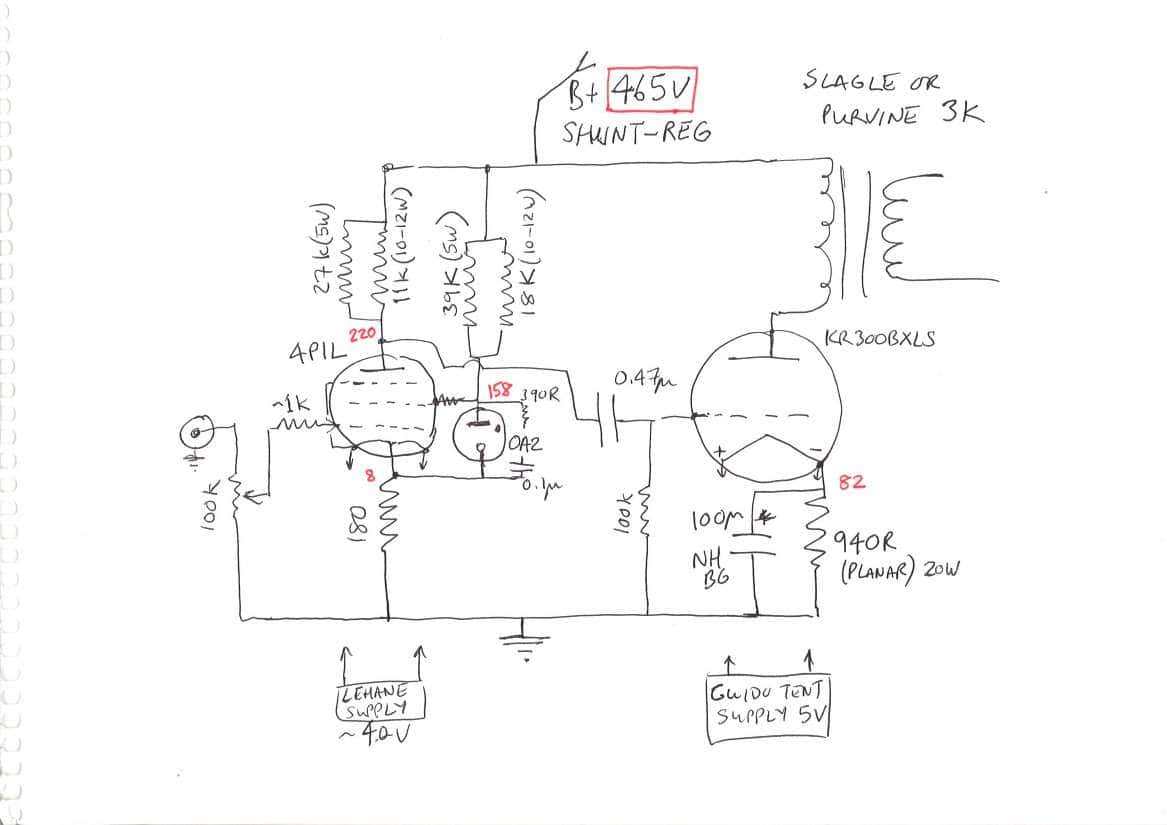 B+ 465V
SHUNT-REG
SLAGLE OR
PURVINE 3K
27k(5W)
11k(10-12W)
39K(5W)
18K(10-12W)
220
4P1L
~1K
158
390R
0A2
0.1µ
8
180
100K
0.47µ
KR300BXLS
+
-
82
100K
100µ *
NH
BG
940R
(PLANAR) 20W
LEHANE
SUPPLY
~4.0V
GUIDO TENT
SUPPLY 5V